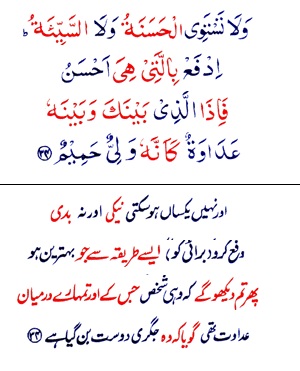 وَلَا تَسْتَوِی الْحَسَنَةُ وَلَا السَّیِّئَةُ ؕ
اِدْفَعْ بِالَّتِیْ هِیَ اَحْسَنُ
فَاِذَا الَّذِیْ بَیْنَكَ وَبَیْنَهٗ
عَدَاوَةٌ كَاَنَّهٗ وَلِیٌّ حَمِیْمٌ ﴿۳۴﴾
اور نہیں یکساں ہو سکتی نیکی اور نہ بدی
دفع کرو (برائی کو) ایسے طریقہ سے جو بہترین ہو
پھر تم دیکھو گے کہ وہی شخص جس کے اور تمہارے درمیان
عداوت تھی گویا کہ وہ جگری دوست بن گیا ہے ﴿۳۴﴾